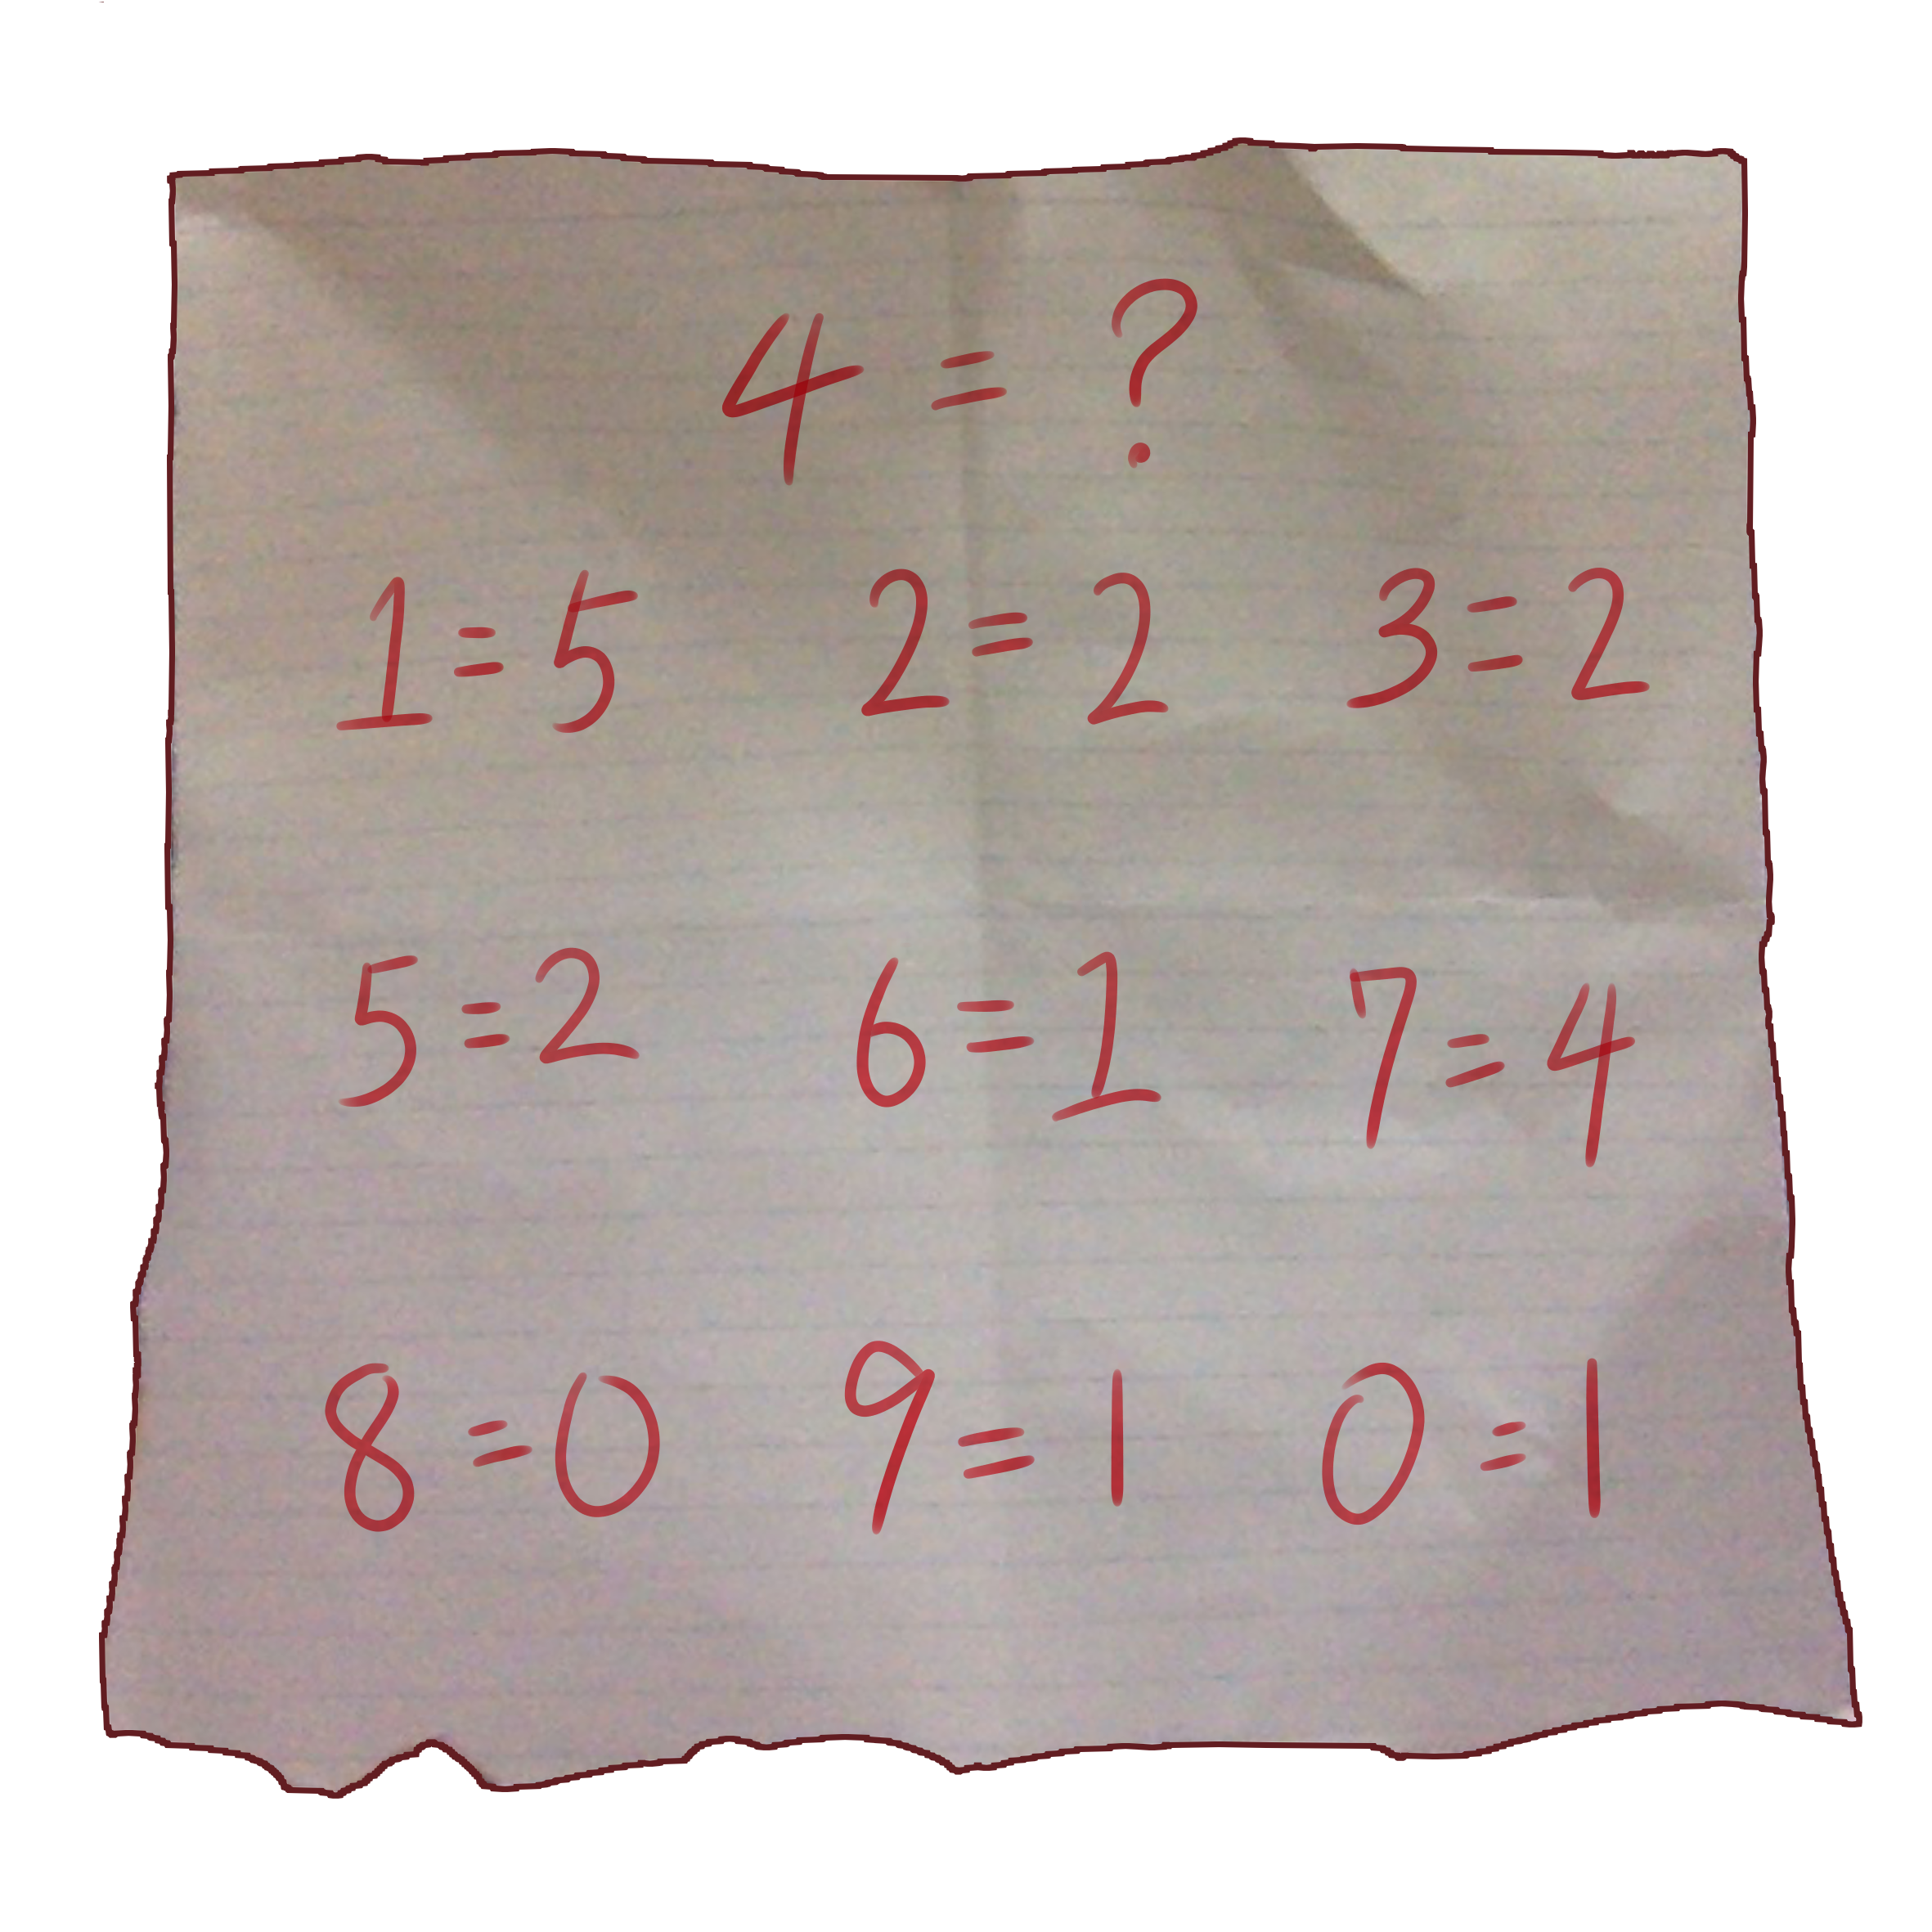 4 = ?
1=5 2=2 3=2
5=2 6=1 7=4
8=0 9=1 0=1